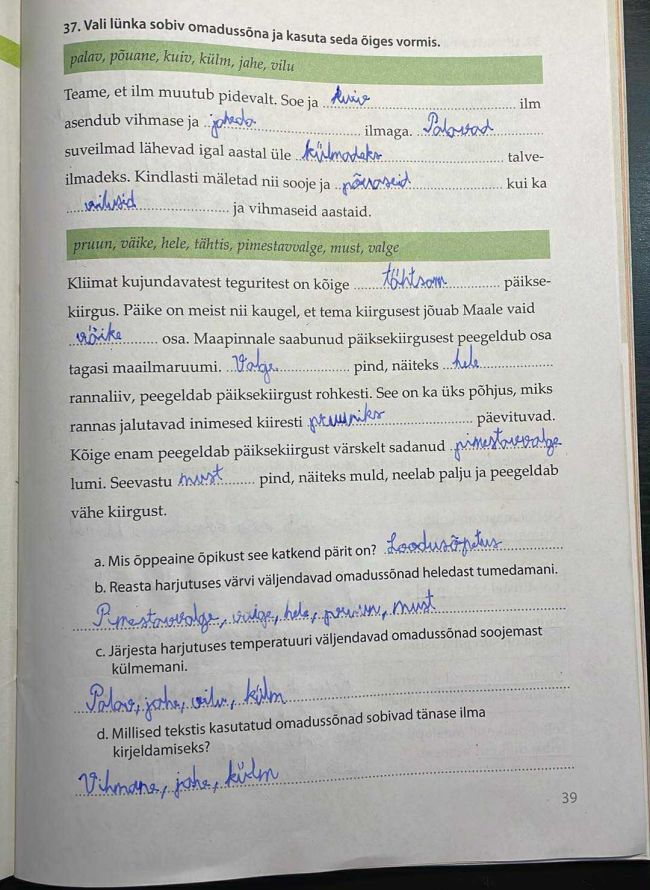 37. Vali lünka sobiv omadussõna ja kasuta seda õiges vormis.
palav, põuane, kuiv, külm, jahe, vilu
Teame, et ilm muutub pidevalt. Soe ja kuiv ilm
asendub vihmase ja jaheda ilmaga. Palavad
suveilmad lähevad igal aastal üle külmadeks talve-
ilmadeks. Kindlasti mäletad nii sooje ja põuaseid kui ka
vilusid ja vihmaseid aastaid.
pruun, väike, hele, tähtis, pimestavvalge, must, valge
Kliimat kujundavatest teguritest on kõige tähtsam päikse-
kiirgus. Päike on meist nii kaugel, et tema kiirgusest jõuab Maale vaid
väike osa. Maapinnale saabunud päiksekiirgusest peegeldub osa
tagasi maailmaruumi. Valge pind, näiteks hele
rannaliiv, peegeldab päiksekiirgust rohkesti. See on ka üks põhjus, miks
rannas jalutavad inimesed kiiresti pruuniks päevituvad.
Kõige enam peegeldab päiksekiirgust värskelt sadanud pimestavvalge
lumi. Seevastu must pind, näiteks muld, neelab palju ja peegeldab
vähe kiirgust.
a. Mis õppeaine õpikust see katkend pärit on? Loodusõpetus
b. Reasta harjutuses värvi väljendavad omadussõnad heledast tumedamani.
Pimestavvalge, hele, pruun, must
c. Järjesta harjutuses temperatuuri väljendavad omadussõnad soojemast
külmemani.
Palav, jahe, vilu, külm
d. Millised tekstis kasutatud omadussõnad sobivad tänase ilma
kirjeldamiseks?
Vihmane, jahe, külm
39